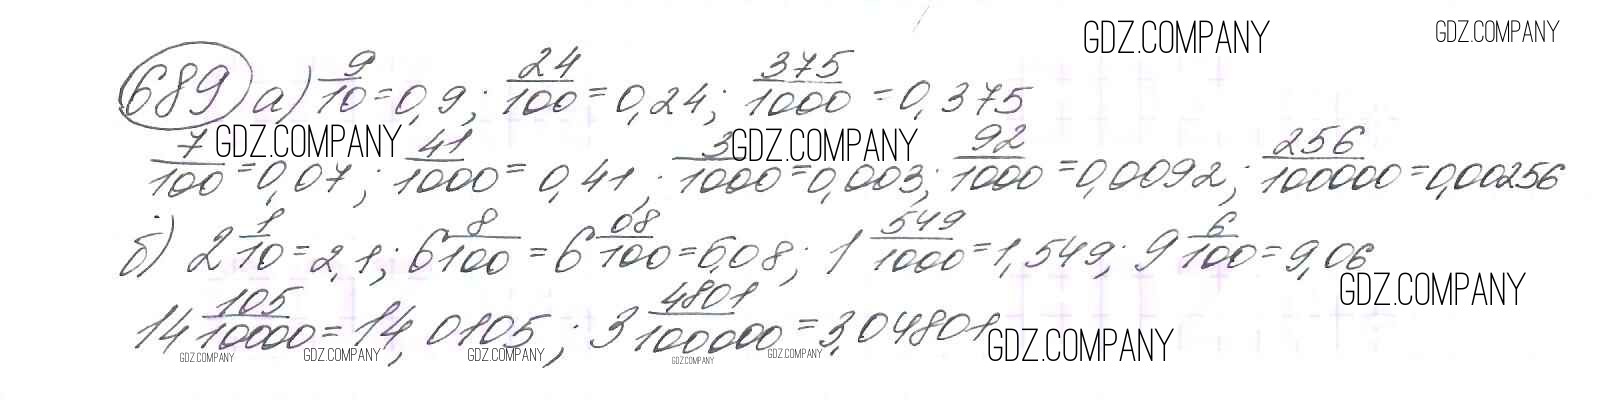 GDZ.COMPANY GDZ.COMPANY
689 а) 9/10 = 0,9; 24/100 = 0,24; 375/1000 = 0,375
GDZ.COMPANY GDZ.COMPANY
7/100 = 0,07; 41/1000 = 0,41; 3/1000 = 0,003; 92/1000 = 0,0092; 256/100000 = 0,00256
б) 2 1/10 = 2,1; 6 8/100 = 6 08/100 = 6,08; 1 549/1000 = 1,549; 9 6/100 = 9,06
GDZ.COMPANY
14 105/10000 = 14,0105; 3 4801/100000 = 3,04801
GDZ.COMPANY
GDZ.COMPANY GDZ.COMPANY GDZ.COMPANY GDZ.COMPANY GDZ.COMPANY